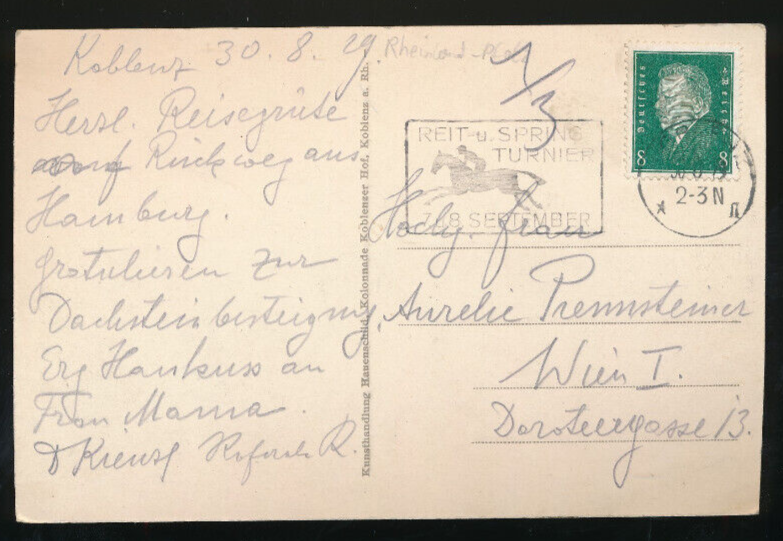 Koblenz 30.8.29.
Herzl. Reisegrüße
auf Rückweg aus
Hamburg.
Gratulieren zur
Dachsteinbesteigung,
Erg Handkuss an
Frau Mama.
D Kienzl
Kunsthandlung Hauenschild, Kolonnade Koblenzer Hof, Koblenz a. Rh.
Rheinland-Pfalz
REIT-u. SPRING
TURNIER
7./8. SEPTEMBER
Deutsches Reich
8 8
2-3 N
Hochg. Frau
Aurelie Prennsteiner
Wien I.
Doroteergasse 13.